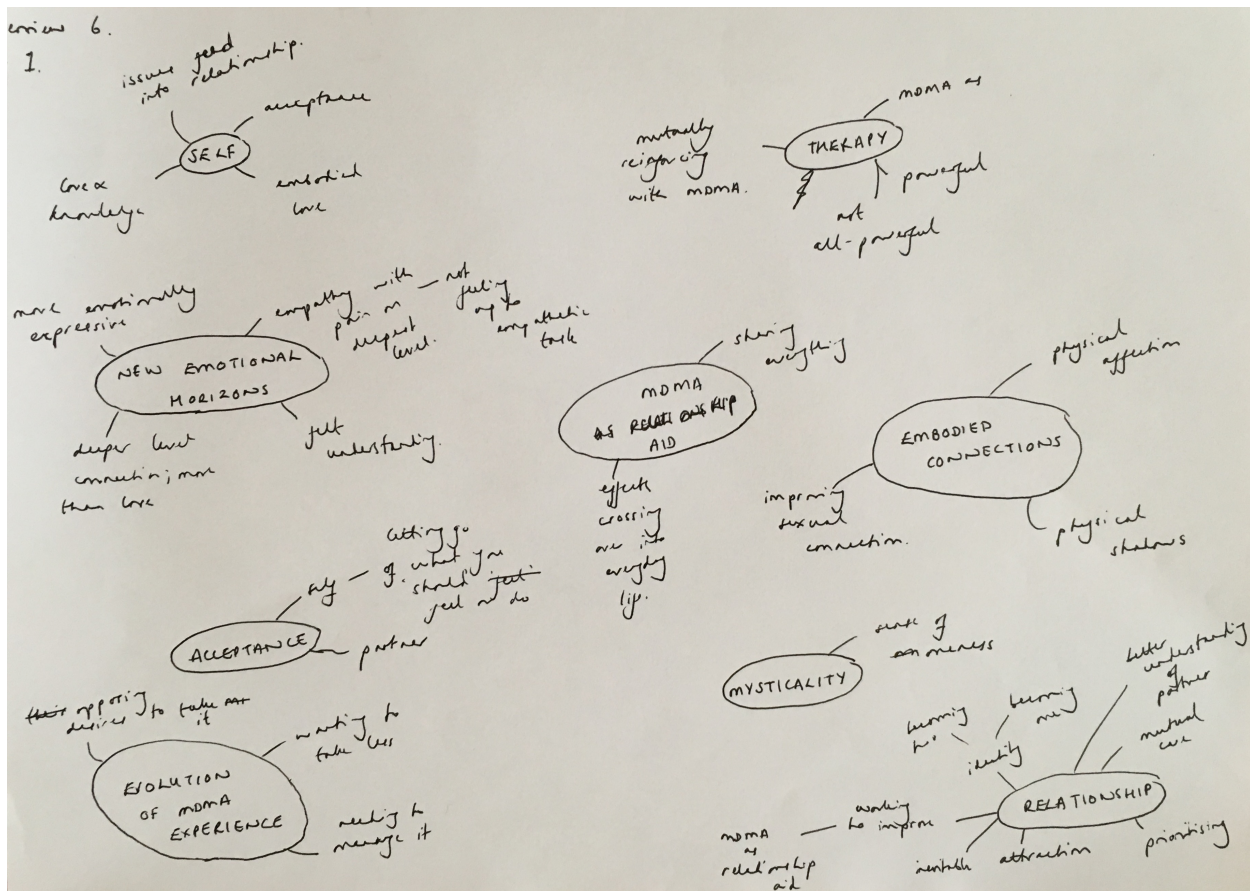 6.
1.
issues feed
into relationship.
acceptance
SELF
love &
knowledge
embodied
love
MDMA as
THERAPY
mutually
reinforcing
with MDMA.
powerful
not
all-powerful
more emotionally
expressive
empathy with
pain on
deepest
level.
not
feeling
up to
empathetic
task
NEW EMOTIONAL
HORIZONS
deeper level
connection; more
than love
felt
understanding.
sharing
everything
MDMA
AS RELATIONSHIP
AID
effects
crossing
over into
everyday
life.
physical
affection
EMBODIED
CONNECTIONS
improving
sexual
connection.
physical
shadows
self
letting go
of what you
should feel
feel or do
ACCEPTANCE
partner
sense of
oneness
MYSTICALITY
their opposing
desires to take
it
wanting to
take less
EVOLUTION
OF MDMA
EXPERIENCE
needing to
manage it
better
understanding
of
partner
mutual
care
becoming
becoming
identity
RELATIONSHIP
working
to improve
MDMA
as
relationship
aid
inevitable
attraction
prioritising